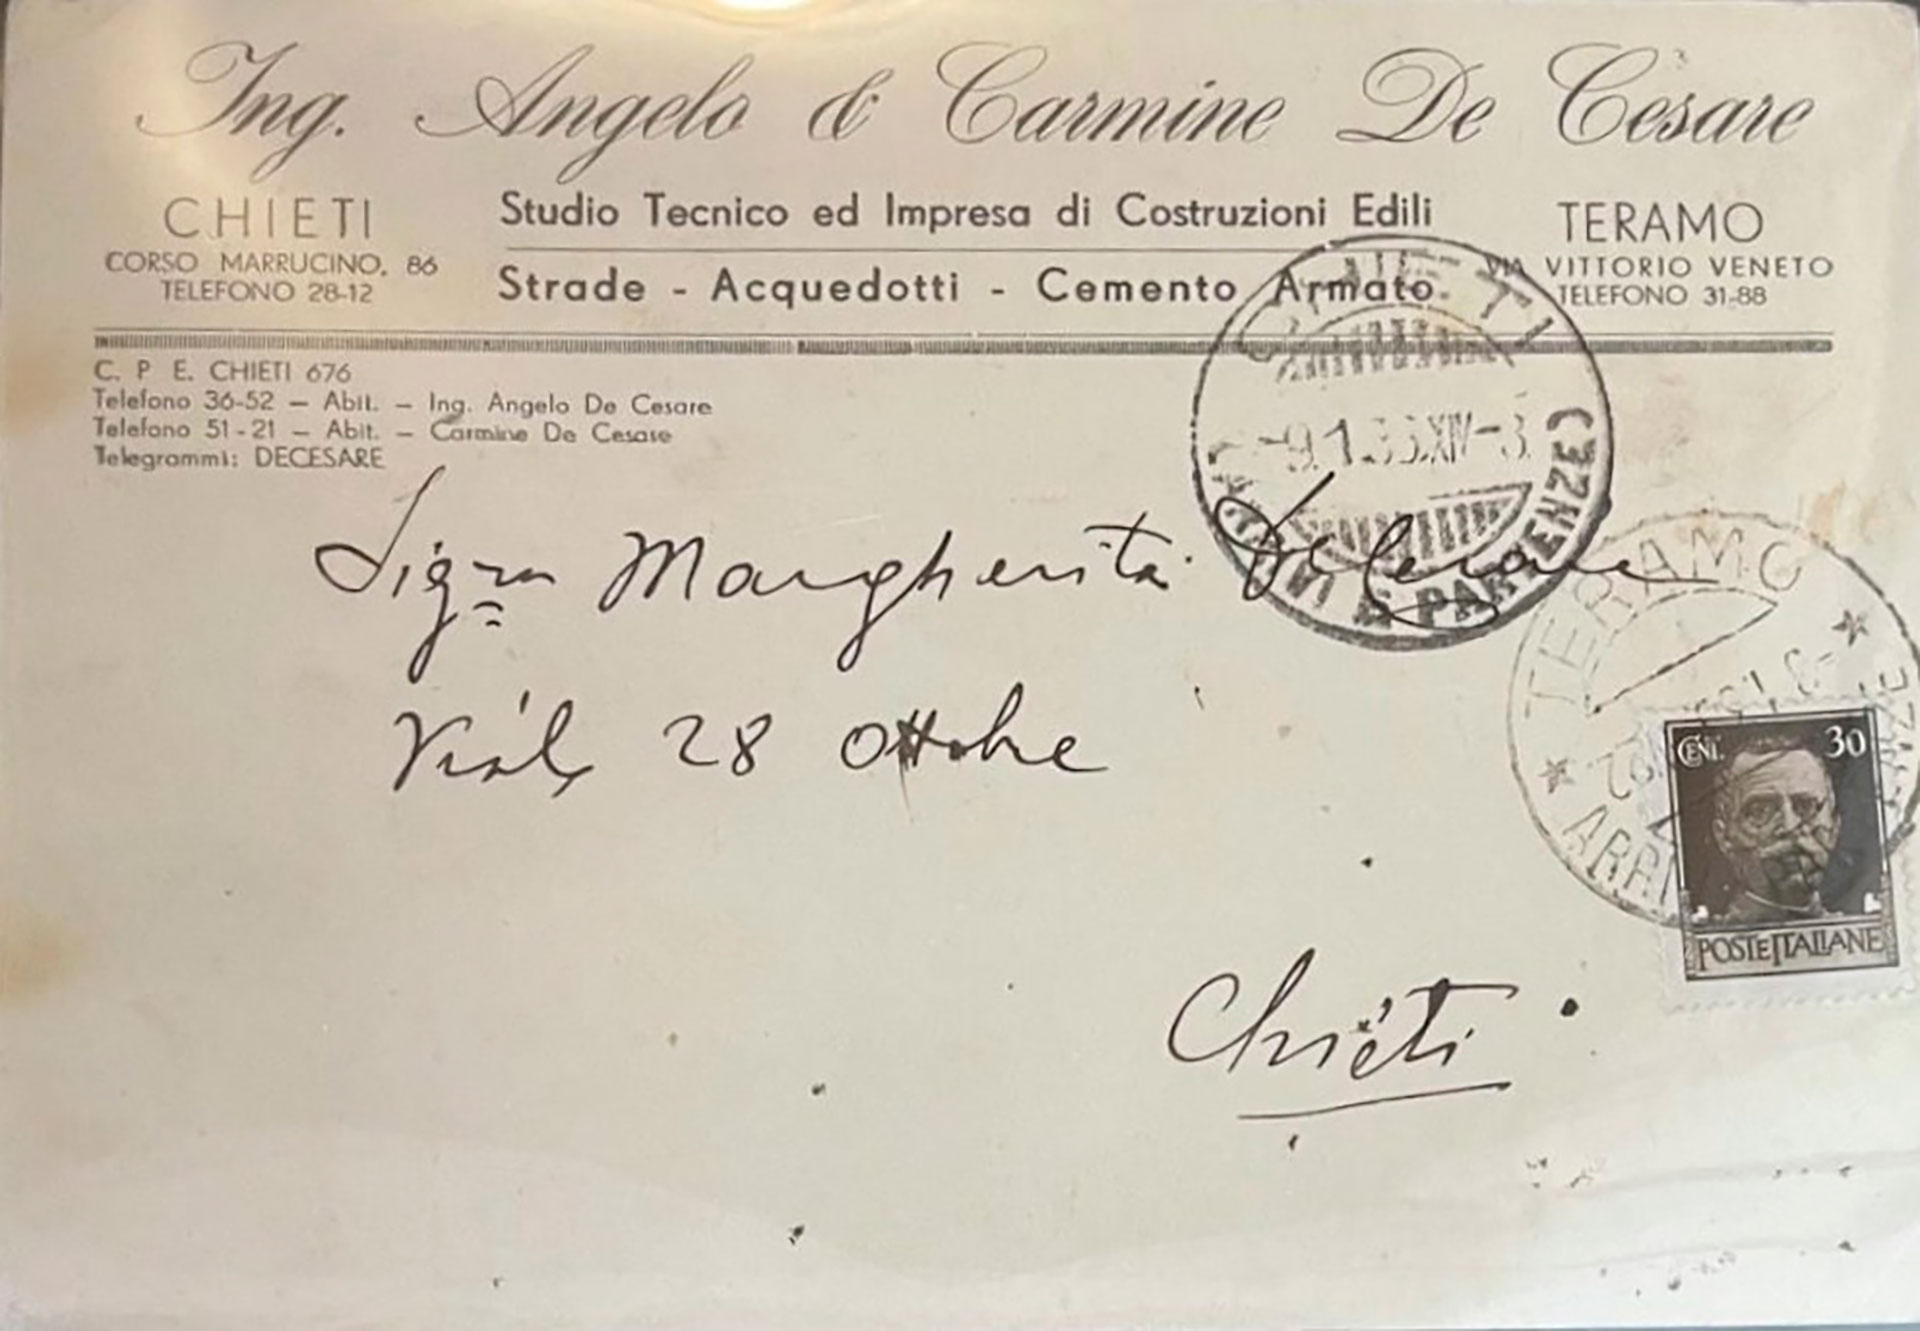 Ing. Angelo & Carmine De Cesare
CHIETI
CORSO MARRUCINO, 86
TELEFONO 28-12
Studio Tecnico ed Impresa di Costruzioni Edili
Strade - Acquedotti - Cemento Armato
TERAMO
VIA VITTORIO VENETO
TELEFONO 31-88
C. P. E. CHIETI 676
Telefono 36-52 — Abit. — Ing. Angelo De Cesare
Telefono 51-21 — Abit. — Carmine De Cesare
Telegrammi: DECESARE
CHIETI
ARRIVI E PARTENZE
Sigra Margherita De Cesare
Viale 28 Ottobre
Chieti
TERAMO
CENT. 30
POSTE ITALIANE